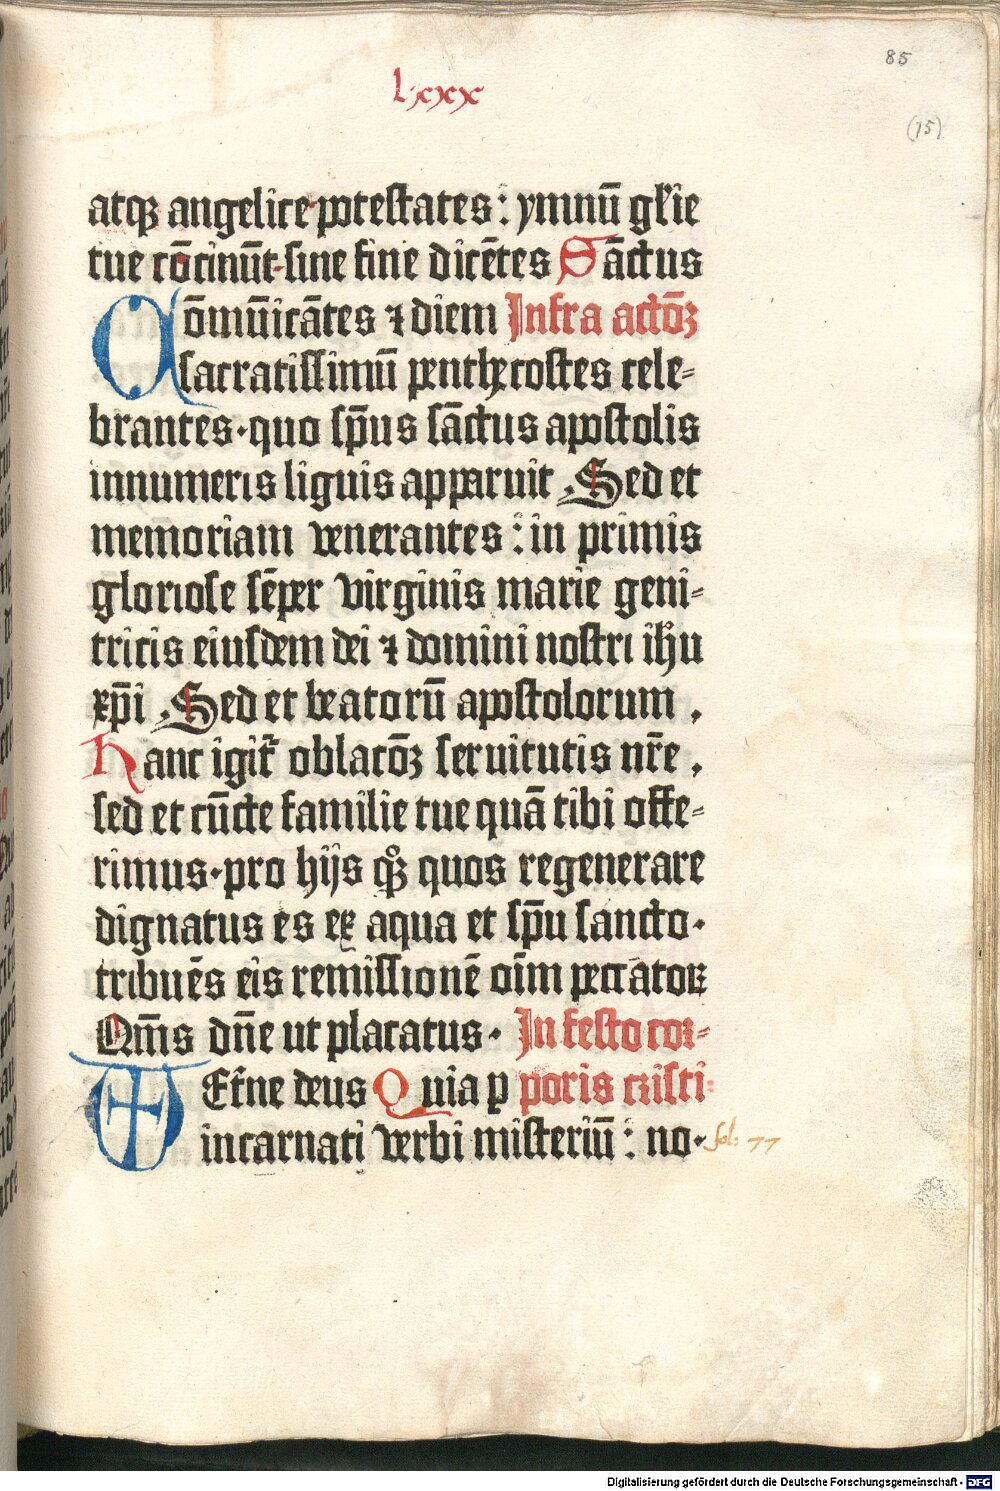 85
(15)
lxxx
atqꝫ angelice potestates : ymnū gl'ie
tue cōcinūt sine fine dicētes Sāctus
Cōmūicātes ⁊ diem Infra actōꝫ
sacratissimū penthecostes cele-
brantes · quo sp̄us sāctus apostolis
innumeris liguis apparuit Sed et
memoriam venerantes : in primis
gloriose sēper virginis marie geni-
tricis eiusdem dei ⁊ domini nostri ihū
xp̄i . Sed et beatorū apostolorum .
Hanc igit᷑ oblacōꝫ seruitutis nr̄e .
sed et cūcte familie tue quā tibi offe-
rimus · pro hijs qͦꝫ quos regenerare
dignatus es ex aqua et sp̄u sancto ·
tribuēs eis remissionē oīm peccatoꝝ
Qm̄s dn̄e ut placatus · In festo cor-
Et̄ne deus Quia ꝑ poris cristi :
incarnati verbi misteriū : no ·
fol: 77
Digitalisierung gefördert durch die Deutsche Forschungsgemeinschaft - DFG